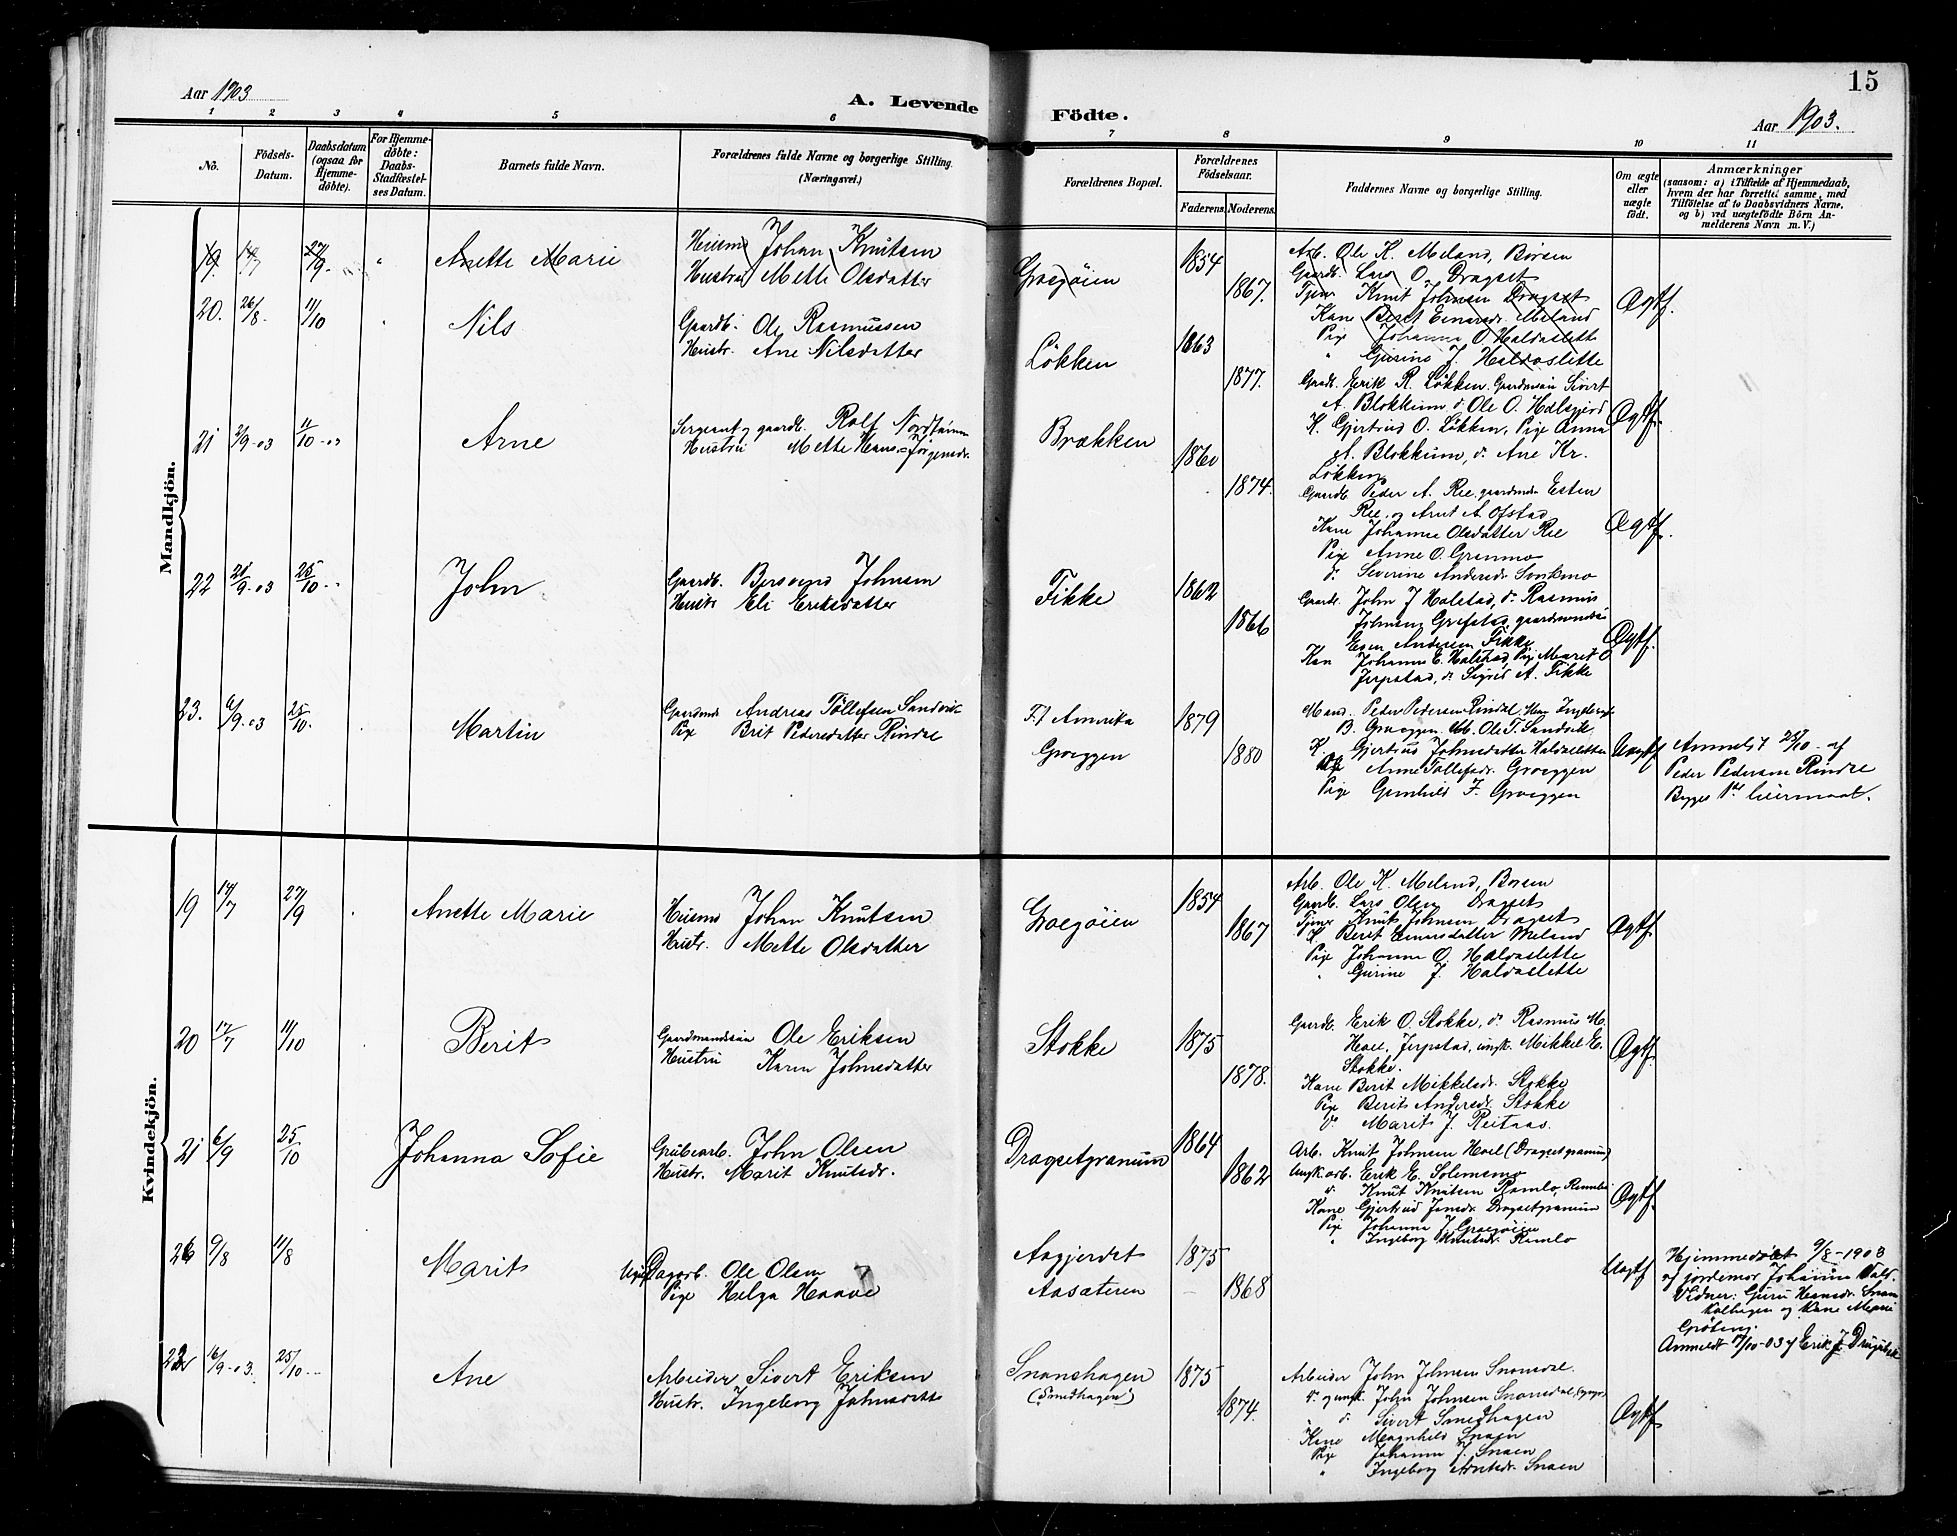 15
Aar 1903
A. Levende Födte.
Aar 1903.
1 2 3 4 5 6 7 8 9 10 11
No.
Födsels-Datum.
Daabsdatum (ogsaa for Hjemmedöbte).
For Hjemmedöbte: Daabs-Stadfæstelses Datum.
Barnets fulde Navn.
Forældrenes fulde Navne og borgerlige Stilling.
(Næringsvei.)
Forældrenes Bopæl.
Forældrenes Födselsaar.
Faderens. Moderens.
Faddernes Navne og borgerlige Stilling.
Om ægte eller uægte födt.
Anmærkninger
(saasom: a) i Tilfælde af Hjemmedaab, hvem der har forrettet samme, med Tilföielse af to Daabsvidners Navne, og b) ved uægtefödte Börn Anmelderens Navn m. V.)
Mandkjön.
19. 14/7 27/9. " Anette Marie
Husmd Johan Knutsen
Hustru Mette Olsdatter
Grægöien 1854 1867.
Arb. Ole K. Meland, Börsen
Gaardb. Lars O. Dragset
Tjener Knut Johnsen Dragset
Kone Beret Einarsdr. Meland
Pige Johanna O. Haldaslette
" Gurine J. Haldaslette
Ægtf.
20. 26/8 11/10 Nils
Gaardb. Ole Rasmussen
Hustr. Ane Nilsdatter
Løkken 1863 1877.
Gaardb. Erik R. Løkken. Gaardmsøn Sivert
A. Blokkum, do Ole O. Halsgjerd
K. Gjertrud O. Løkken, Pige Anna
A. Blokkum, do. Ane Kr.
Løkken
Ægtf.
21 2/9-03 11/10-03 Arne
Sergeant og gaardb. Rolf Nordtømme
Hustru Mette Hans=Jörgensdr.
Brækken 1860 1874.
Gaardb. Peder A. Ree, gaardmds Esten
Ree, og Arnt A. Ofstad
Kone Johanna Olsdatter Ree
Pige Anne O. Grönmo
do. Severine Andersdr. Svorkmo
Ægtf.
22 21/9-03 25/10 John
Gaardb. Bersvend Johnsen
Hustr Eli Eriksdatter
Fikke 1862 1866
Gaardb. John J Halstad, do Rasmus
Johnsen Grefstad, gaardmandsøn
Esten Andersen Fikke
Kon Johanna E. Halstad, Pige Marit O
Jerpstad, do Sigrid A. Fikke
Ægtf.
23. 6/9-03 25/10. Martin
Gaardmds Andreas Tøllefsen Sandvik
Pige Brit Pedersdatter Rindal
F. i Amerika
Græggen
1879 1880
Mand. Peder Pedersen Rindal, Ingebrigt
B. Græggen Arb. Ole T. Sandvik
K. Gjertrud Johnsdatter Haldaslette
Pige Anne Tøllefsdr. Græggen
Pige Gunhild F. Græggen
Uægtf
Anmeldt 25/10 - af
Peder Pedersen Rindal
Begges 1ste Leiermaal.
Kvindekjön.
19 14/7 27/9 Anette Marie
Husmd Johan Knutsen
Hustr. Mette Olsdatter
Grægöien 1854 1867
Arb. Ole K. Meland, Börsen
Gaardb. Lars Olsen Dragset
Tjener Knut Johnsen Dragset
K Beret Einarsdatter Meland
Pige Johanna O. Haldaslette
" Gurine J. Haldaslette
Ægtf.
20 17/7 11/10 Berit
Gaardmandssøn Ole Eriksen
Hustru Karen Johnsdatter
Stokke 1875 1878.
Gaardb. Erik O. Stokke, do. Rasmus M.
Hoel, Jerpstad, ungk. Mikkel E.
Stokke.
Kone Berit Mikkelsdr. Stokke
Pige Berit Andersdr. Stokke
do Marit J. Reitaas.
Ægtf.
21 6/9 25/10 Johanna Sofie
Grubearb. John Olsen
Hustr. Marit Knutsdr.
Dragsetgranum 1864 1862
Arb. Knut Johnsen Hoel (Dragsetgranum)
Ungk. arb. Erik E. Solemsmo
do. Knut Knutsen Ramlo, Rennebu
Kone Gjertrud Jonsdr. Dragsetgranum
Pige Johanna J. Grægöien
" Ingeborg Knutsdr. Ramlo
Ægtf.
22 9/8 11/8 Marit
Ugift Dagarb. Ole Olsen
Pige Helga Haave
Aagjerdet 1875
Aasæteren - 1868
Uægtf
Hjemmedøbt 9/8-1903
af jordemor Johanna Vald.
Vidner: Guru Hansdr. Snos-
kolhagen og Kone Marie
Gröting.
Anmeldt 17/10-03 af Erik J. Drugudal
23 16/9-03. 25/10 Ane
Arbeider Sivert Eriksen
Hustr. Ingeborg Johnsdatt
Snoenshagen
(Smedhagen)
1875 1874.
Arbeider John Johnsen Snoesdal.
do og ungk. John Johnsen Snoesdal,
do. Sivert Smedhagen
Kone Magnhild Snoen
Pige Johanna J. Snoen
" Ingeborg Arntsdr. Snoen
Ægtf